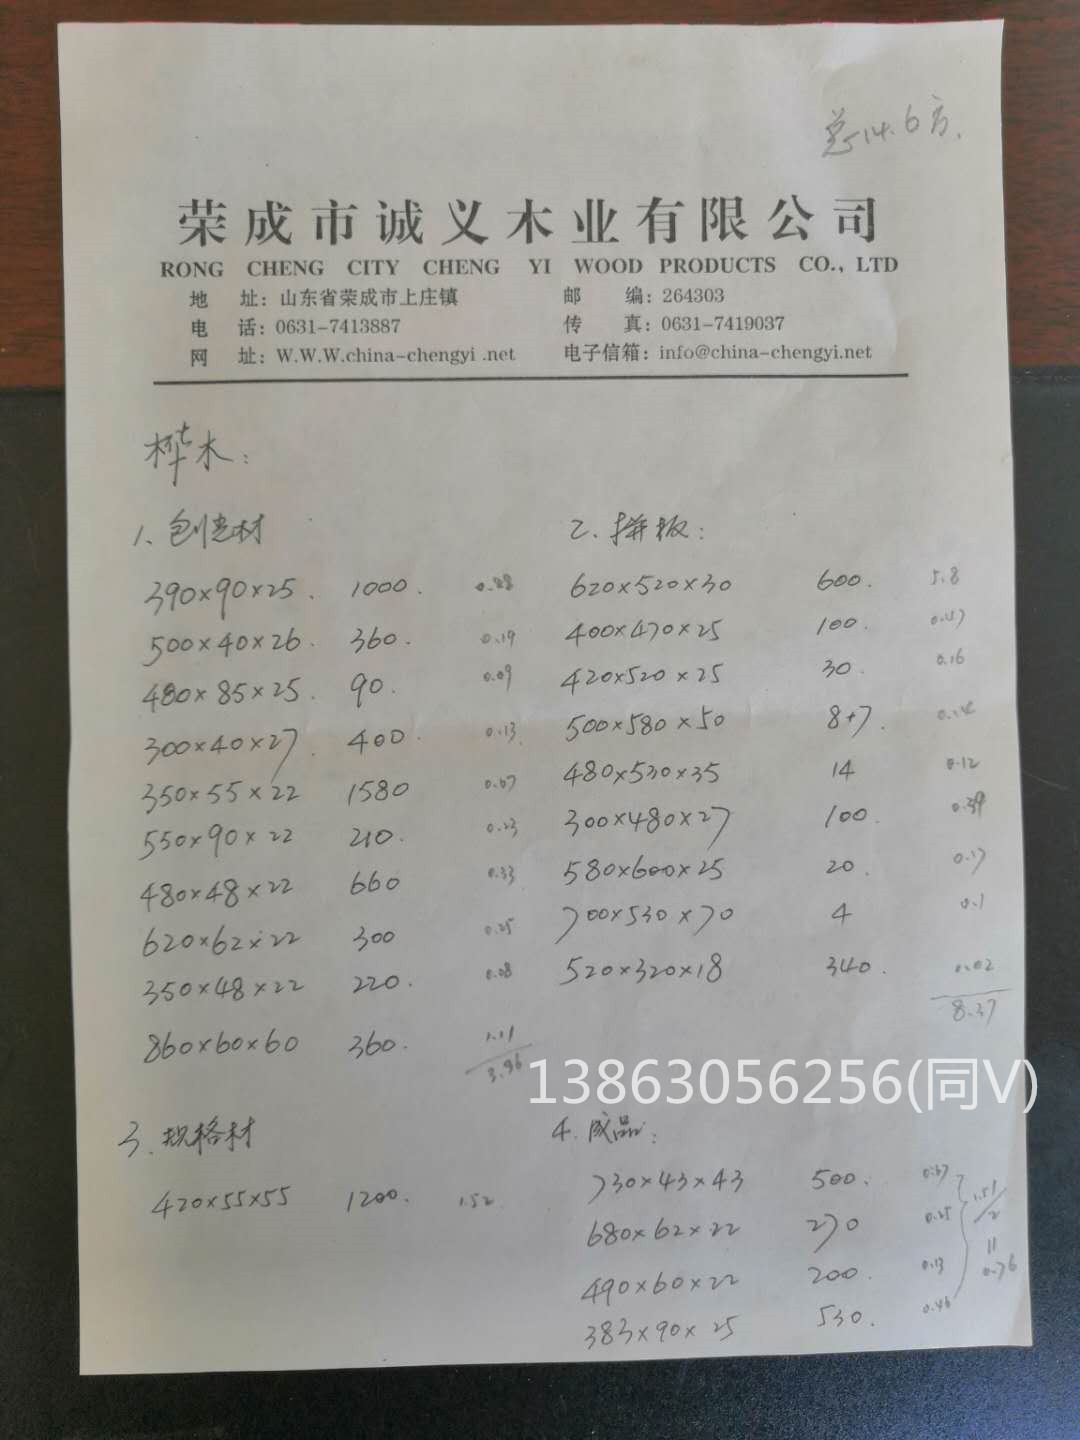 总14.6方.
荣成市诚义木业有限公司
RONG CHENG CITY CHENG YI WOOD PRODUCTS CO., LTD
地 址: 山东省荣成市上庄镇 邮 编: 264303
电 话: 0631-7413887 传 真: 0631-7419037
网 址: W.W.W.china-chengyi .net 电子信箱: info@china-chengyi.net
桦木:
1、刨光材
390×90×25. 1000. 0.88
500×40×26. 360. 0.19
480×85×25. 90. 0.09
300×40×27. 400. 0.13
350×55×22 1580 0.67
550×90×22 210. 0.23
480×48×22 660 0.33
620×62×22 300 0.25
350×48×22 220. 0.08
860×60×60 360. 1.11
3.96
2.拼板:
620×520×30 600. 5.8
400×470×25 100. 0.47
420×520×25 30. 0.16
500×580×50 8+7.
480×530×35 14 0.12
300×480×27 100. 0.39
580×600×25 20. 0.17
700×530×70 4 0.1
520×320×18 340. 1.02
8.37
13863056256(同V)
3.规格材
420×55×55 1200. 1.52
4.成品:
730×43×43 500. 0.67
680×62×22 270 0.25
490×60×22 200. 0.13
383×90×25 530. 0.46
1.51/2
0.76